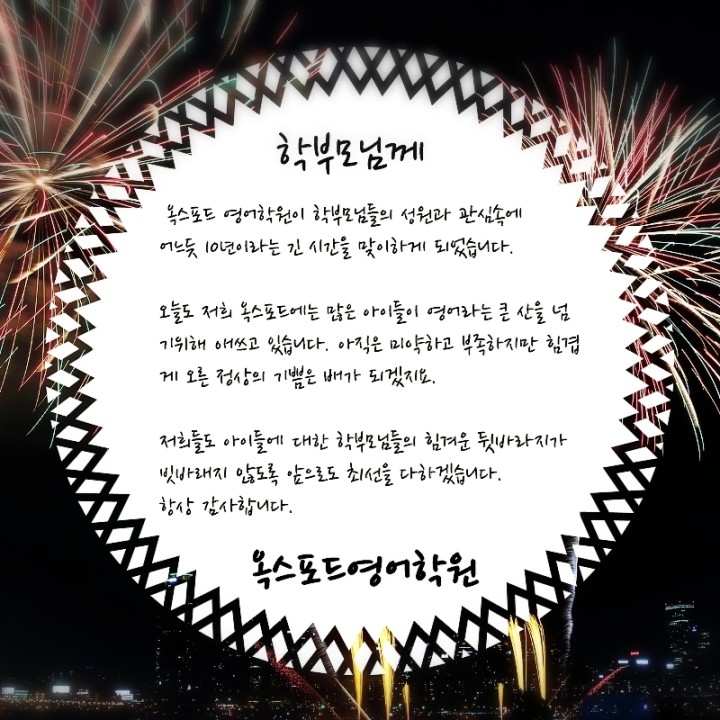 학부모님께
옥스포드 영어학원이 학부모님들의 성원과 관심속에
어느듯 10년이라는 긴 시간을 맞이하게 되었습니다.
오늘도 저희 옥스포드에는 많은 아이들이 영어라는 큰 산을 넘
기위해 애쓰고 있습니다. 아직은 미약하고 부족하지만 힘겹
게 오른 정상의 기쁨은 배가 되겠지요.
저희들도 아이들에 대한 학부모님들의 힘겨운 뒷바라지가
빗바래지 않도록 앞으로도 최선을 다하겠습니다.
항상 감사합니다.
옥스포드영어학원